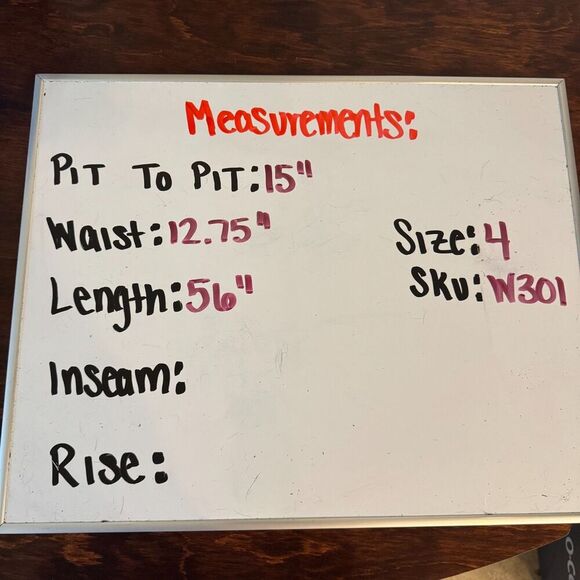 Measurements:
Pit To Pit: 15"
Waist: 12.75"
Size: 4
Length: 56"
SKU: W301
Inseam:
Rise: